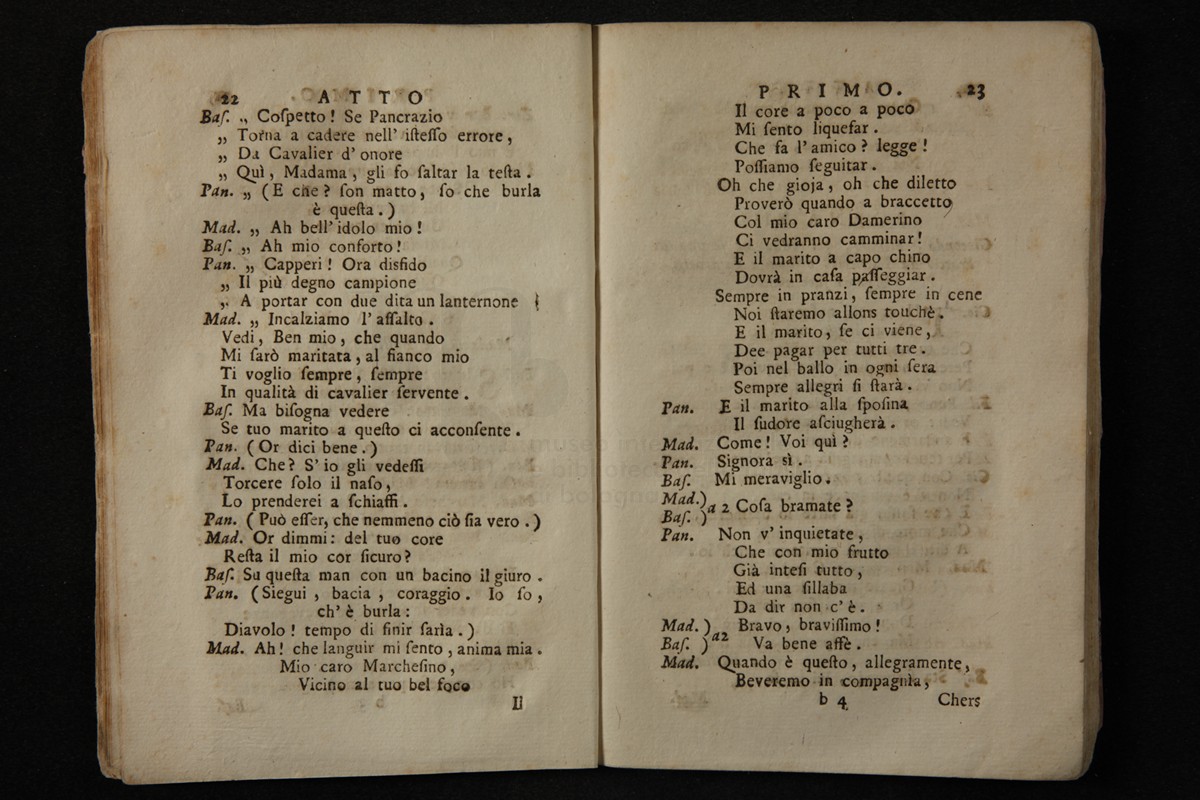 22 ATTO
Baſ. „ Coſpetto! Se Pancrazio
„ Torna a cadere nell' iſteſſo errore,
„ Da Cavalier d' onore
„ Quì, Madama, gli fo ſaltar la teſta.
Pan. „ (E che? ſon matto, ſo che burla
è queſta.)
Mad. „ Ah bell' idolo mio!
Baſ. „ Ah mio conforto!
Pan. „ Capperi! Ora disfido
„ Il più degno campione
„ A portar con due dita un lanternone
Mad. „ Incalziamo l' aſſalto.
Vedi, Ben mio, che quando
Mi ſarò maritata, al fianco mio
Ti voglio ſempre, ſempre
In qualità di cavalier ſervente.
Baſ. Ma biſogna vedere
Se tuo marito a queſto ci acconſente.
Pan. (Or dici bene.)
Mad. Che? S' io gli vedeſſi
Torcere ſolo il naſo,
Lo prenderei a ſchiaffi.
Pan. (Può eſſer, che nemmeno ciò ſia vero.)
Mad. Or dimmi: del tuo core
Reſta il mio cor ſicuro?
Baſ. Su queſta man con un bacino il giuro.
Pan. (Siegui, bacia, coraggio. Io ſo,
ch' è burla:
Diavolo! tempo di finir ſarìa.)
Mad. Ah! che languir mi ſento, anima mia.
Mio caro Marcheſino,
Vicino al tuo bel foco
Il
PRIMO. 23
Il core a poco a poco
Mi ſento liquefar.
Che fa l' amico? legge!
Poſſiamo ſeguitar.
Oh che gioja, oh che diletto
Proverò quando a braccetto
Col mio caro Damerino
Ci vedranno camminar!
E il marito a capo chino
Dovrà in caſa paſſeggiar.
Sempre in pranzi, ſempre in cene
Noi ſtaremo allons touchè.
E il marito, ſe ci viene,
Dee pagar per tutti tre.
Poi nel ballo in ogni ſera
Sempre allegri ſi ſtarà.
Pan. E il marito alla ſpoſina
Il ſudore aſciugherà.
Mad. Come! Voi quì?
Pan. Signora sì.
Baſ. Mi meraviglio.
Mad.)
Baſ. ) a 2 Coſa bramate?
Pan. Non v' inquietate,
Che con mio frutto
Già inteſi tutto,
Ed una ſillaba
Da dir non c' è.
Mad. ) Bravo, braviſſimo!
Baſ. ) a2 Va bene affè.
Mad. Quando è queſto, allegramente,
Beveremo in compagnìa,
b 4 Chers